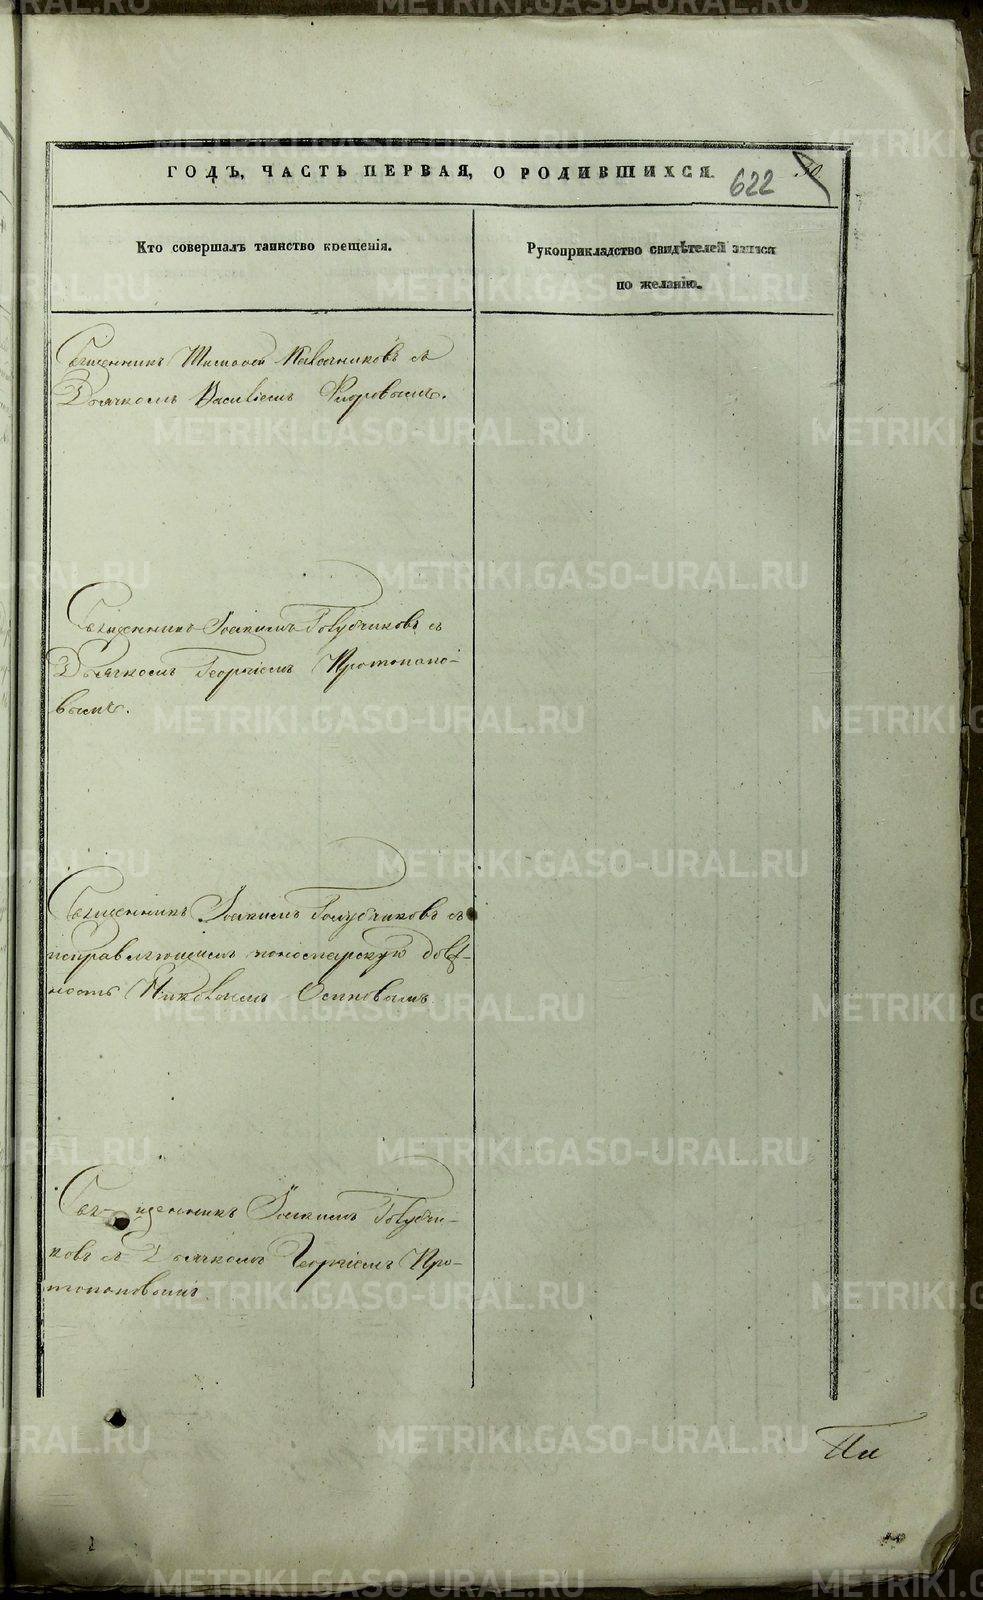 ГОДЪ, ЧАСТЬ ПЕРВАЯ, О РОДИВШИХСЯ.
622
30
Кто совершалъ таинство крещенія.
Рукоприкладство свидѣтелей записи
по желанію.
Священникъ Тимофей съ
Дьячкомъ Василіемъ Флоровымъ.
Священникъ Іоакимъ Голубчиковъ съ
Дьячкомъ Георгіемъ Протопопо-
вымъ.
Священникъ Іоакимъ Голубчиковъ съ
исправляющимъ пономарскую долж-
ность Николаемъ Осиповымъ.
Священникъ Іоакимъ Голубчи-
ковъ съ Дьячкомъ Георгіемъ Про-
топоповымъ
METRIKI.GASO-URAL.RU